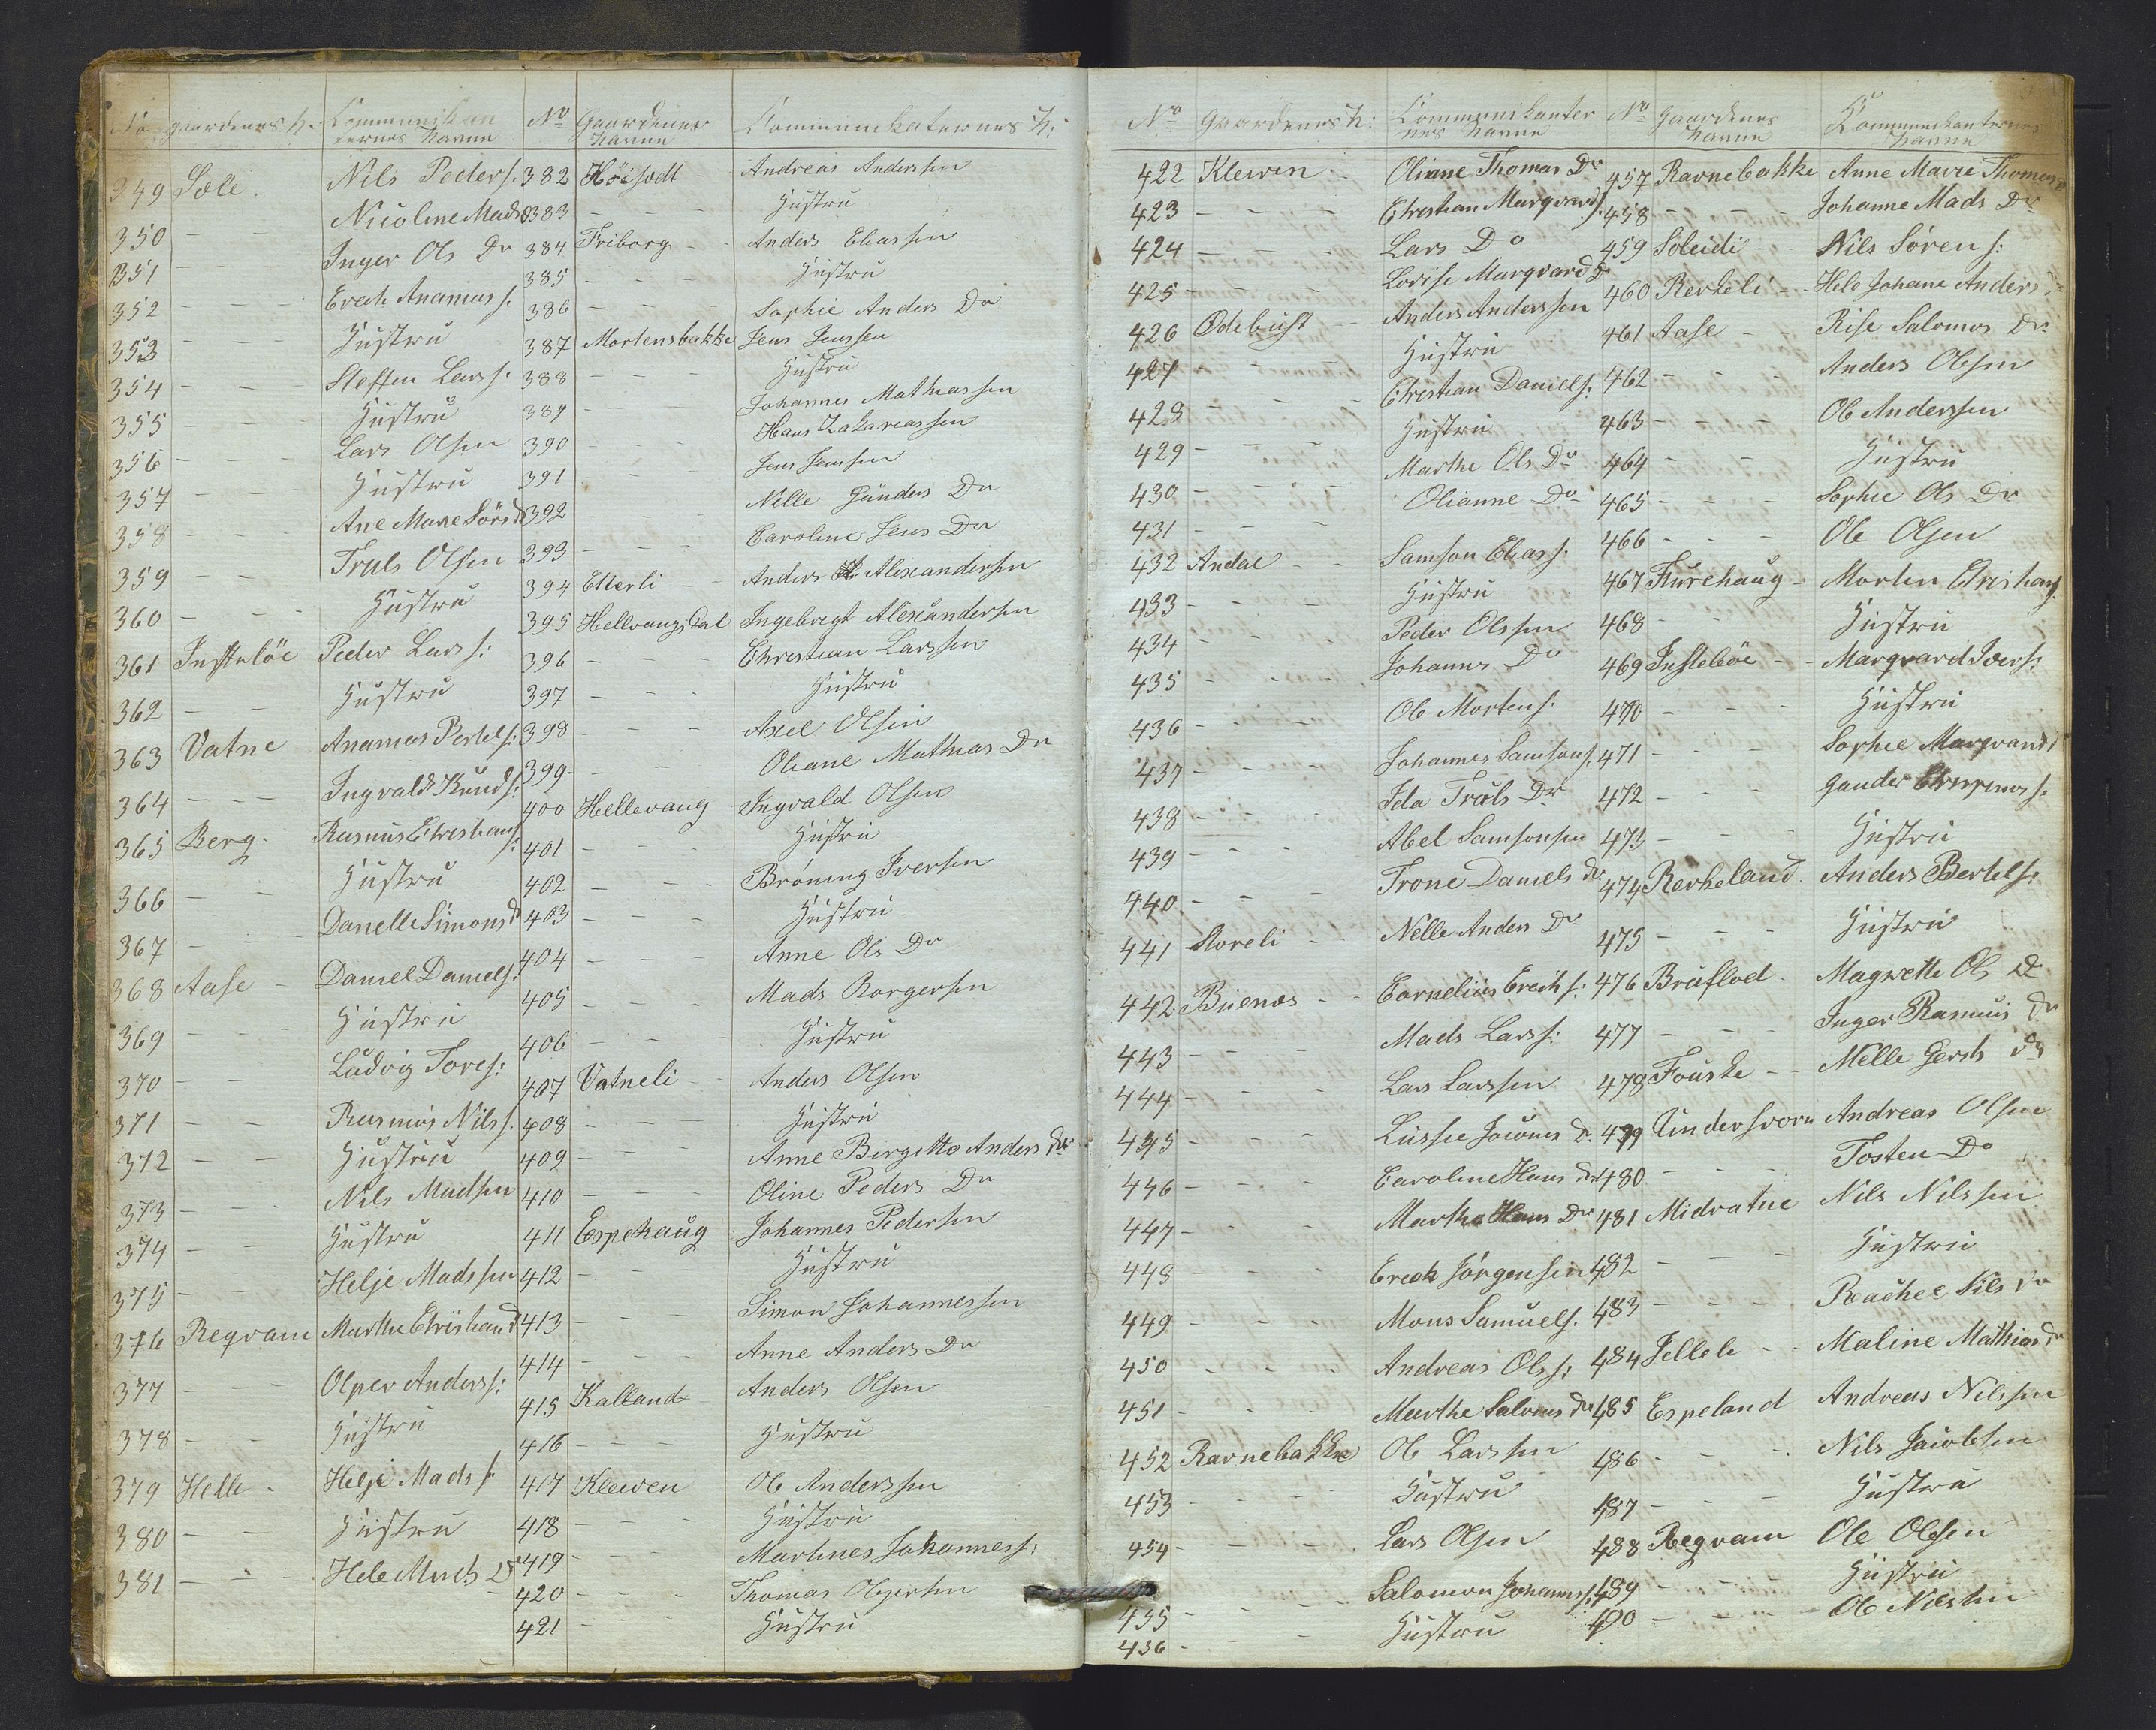 No Gaardenes N. Kommunikanternes Navne
349 Sæle. Nils Peders:
350 - - Nicoline Mads D
351 - - - Inger Ols Dr
352 - - - Erech Ananias s.
353 - - Hustru
354 - - Steffen Lars s.
355 - - - Hustru
356 - - - Lars Olsen
357 - - Hustru
358 - - Ane Marie Sörs D
359 - - Truls Olsen
360 - - - Hustru
361 Insteböe Peder Lars s:
362 - - Hustru
363 Vatne Ananias Pertels:
364 - - - Ingvald Knuds:
365 Berg - Rasmus Christians:
366 - - Hustru
367 - - - Danelle Simons d
368 Aase - Daniel Daniels:
369 - - - Hustru
370 - - Ludvig Tores:
371 - - Rasmus Nils s.
372 - - Hustru
373 - - - Nils Madsen
374 - - Hustru
375 - - Helje Madssen
376 Regvam Marthe Christian d
377 - - - Olper Anders s:
378 - - Hustru
379 Helle - Helje Mads s.
380 - - Hustru
381 - - - Hele Mads D
No Gaardenes Navne Kommunikaternes N:
382 Höisædt - Andreas Andersen
383 - - - Hustru
384 Friborg - - Anders Eliassen
385 - - - Hustru
386 - - - Sophie Anders Dr
387 Mortensbakke Jens Jenssen
388 - - - Hustru
389 - - Johannes Mathiassen
390 - - - Hans Zakariassen
391 - - Jens Jensen
392 - - - Nille Gunders Dr
393 - - - Caroline Jens Dr
394 Etterli - - Anders Alexandersen
395 Hellvangsdal Ingebregt Alexandersen
396 - - - Christian Larssen
397 - - - Hustru
398 - - - Axel Olsen
399 - - - Oliane Mathias Dr
400 Hellevang Ingvald Olsen
401 - - - Hustru
402 - - - Bröning Iversen
403 - - - Hustru
404 - - - Anne Ols Dr
405 - - - Mads Borgersen
406 - - - Hustru
407 Vatneli - Anders Olsen
408 - - - Hustru
409 - - - Anne Birgitte Anders Dr
410 - - - Oline Peders Dr
411 Espehaug Johannes Pedersen
412 - - - Hustru
413 - - - Simon Johannessen
414 - - - Anne Anders Dr
415 Kalland - Anders Olsen
416 - - - Hustru
417 Kleven Ole Anderssen
418 - - - Hustru
419 - - - Martines Johanness:
420 - - - Thomas Olpersen
421 - - - Hustru
No Gaardenes N: Kommunikanternes Navne
422 Kleven - Oliane Thomas Dr
423 - - - Christian Marqvards.
424 - - - Lars Do
425 - - - Lovise Marqvard D
426 Ødebust - - Anders Anderssen
427 - - - Hustru
428 - - - Christian Daniels:
429 - - - Hustru
430 - - - Marthe Ols Dr
431 - - - Olianne Dr
432 Andal - - Samson Elias s.
433 - - - Hustru
434 - - - Peder Olssen
435 - - - Johannes Do
436 - - - Ole Mortens.
437 - - - Johannes Samsons.
438 - - - Ida Truls Dr
439 - - - Abel Samsonsen
440 - - Trone Daniels dr
441 Storeli - - Nille Anders Dr
442 Buenæs - - Cornelius Erechs:
443 - - - Mads Lars s:
444 - - - Lars Larssen
445 - - - Lussie Jacobs D.
446 - - - Caroline Hans dr
447 - - - Marthe Hans Dr
448 - - - Erech Jörgensen
449 - - - Mons Samuels.
450 - - - Andreas Ols s:
451 - - - Marthe Saloms dr
452 Ravnebakke Ole Larssen
453 - - - Hustru
454 - - - Lars Olsen
455 - - - Salomon Johannss.
456 - - - Hustru
No Gaardenes Navne Kommunikanternes Navne
457 Ravnebakke Anne Marie Thomas D
458 - - - Johanne Mads Dr
459 Soleidi - - Nils Sörens:
460 Rerkeli - - Hele Johane Anders
461 Aase - - Rise Salomos Dr
462 - - - Anders Olssen
463 - - - Ole Anderssen
464 - - - Hustru
465 - - - Sophie Ols Dr
466 - - - Ole Olsen
467 Furehaug - Morten Christians.
468 - - Hustru
469 Insteböe - - Marqvard Ivers:
470 - - - Hustru
471 - - - Sophie Marqvards
472 - - - Gunder
473 - - - Hustru
474 Rerkeland Anders Bertels:
475 - - - Hustru
476 Bruflod - Magrethe Ols D
477 - - - Inger Rasmus Dr
478 Fouske - - Nille Gerts Dr
479 Undersvorn Andreas Olsen
480 - - - Tosten Do
481 Midvatne Nils Nilssen
482 - - - Hustru
483 - - - Rachel Nils Dr
484 Jellele - - Maline Mathias Dr
485 Espeland Andreas Nilssen
486 - - - Nils Jacobsen
487 - - - Hustru
488 Regvam Ole Olesen
489 - - - Hustru
490 - - - Ole Nilssen